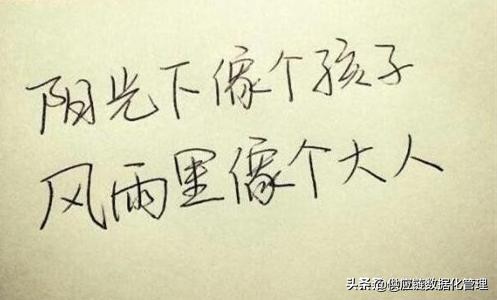 阳光下像个孩子
风雨里像个大人
头条@供应链数据化管理